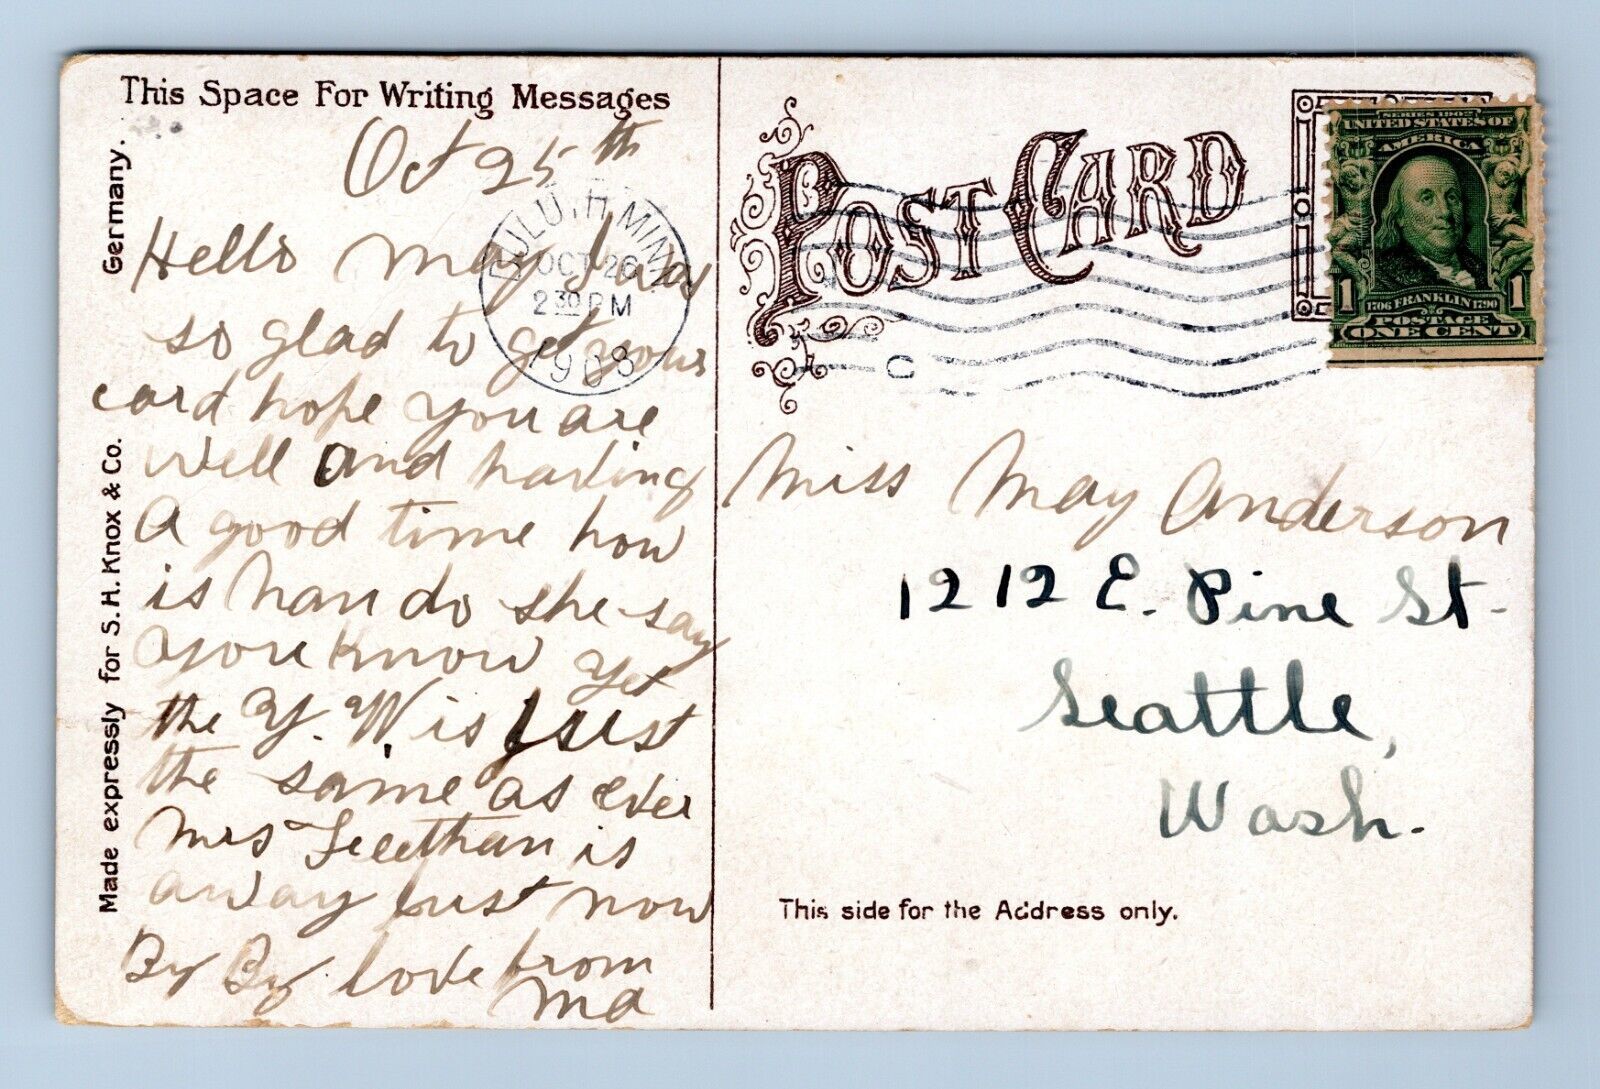 This Space For Writing Messages
Oct 25th
Hello May I was
so glad to get your
card hope you are
well and having
A good time how
is han do she say
you know yet
the Y. W. is just
the same as ever
Mrs is
away just now
By By love from
Ma
Germany.
Made expressly for S. H. Knox & Co.
DULUTH MINN.
OCT 26
2 30 PM
1908
POST CARD
C
SERIES 1902
UNITED STATES OF
AMERICA
1 1
1706 FRANKLIN 1790
POSTAGE
ONE CENT
Miss May Anderson
1212 E. Pine St.
Seattle,
Wash.
This side for the Address only.